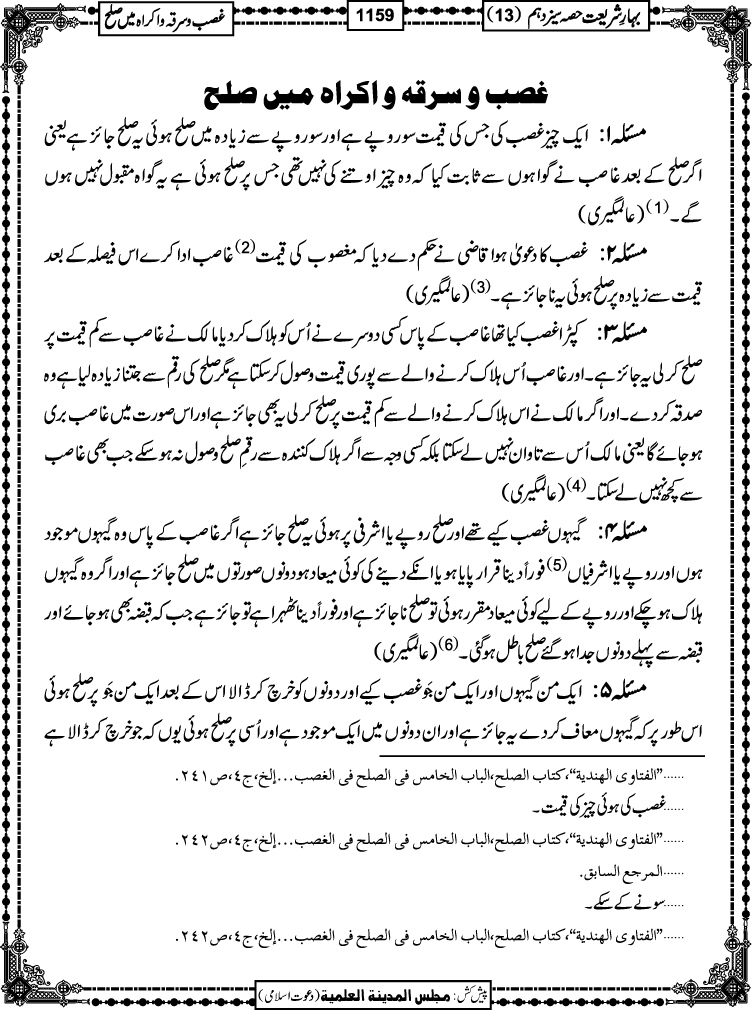 بہارِ شریعت حصہ سیزدہم (13)
1159
غصب و سرقہ و اکراہ میں صلح
غصب و سرقہ و اکراہ میں صلح
مسئلہ ۱: ایک چیز غصب کی جس کی قیمت سو روپے ہے اور سو روپے سے زیادہ میں صلح ہوئی یہ صلح جائز ہے یعنی
اگر صلح کے بعد غاصب نے گواہوں سے ثابت کیا کہ وہ چیز اوتنے کی نہیں تھی جس پر صلح ہوئی ہے یہ گواہ مقبول نہیں ہوں
گے۔(1) (عالمگیری)
مسئلہ ۲: غصب کا دعویٰ ہوا قاضی نے حکم دے دیا کہ مغصوب کی قیمت(2) غاصب ادا کرے اس فیصلہ کے بعد
قیمت سے زیادہ پر صلح ہوئی یہ ناجائز ہے۔(3) (عالمگیری)
مسئلہ ۳: کپڑا غصب کیا تھا غاصب کے پاس کسی دوسرے نے اُس کو ہلاک کر دیا مالک نے غاصب سے کم قیمت پر
صلح کر لی یہ جائز ہے۔ اور غاصب اُس ہلاک کرنے والے سے پوری قیمت وصول کر سکتا ہے مگر صلح کی رقم سے جتنا زیادہ لیا ہے وہ
صدقہ کر دے۔ اور اگر مالک نے اس ہلاک کرنے والے سے کم قیمت پر صلح کر لی یہ بھی جائز ہے اور اس صورت میں غاصب بری
ہو جائے گا یعنی مالک اُس سے تاوان نہیں لے سکتا بلکہ کسی وجہ سے اگر ہلاک کنندہ سے رقمِ صلح وصول نہ ہو سکے جب بھی غاصب
سے کچھ نہیں لے سکتا۔(4) (عالمگیری)
مسئلہ ۴: گیہوں غصب کیے تھے اور صلح روپے یا اشرفی پر ہوئی یہ صلح جائز ہے اگر غاصب کے پاس وہ گیہوں موجود
ہوں اور روپے یا اشرفیاں(5) فوراً دینا قرار پایا ہو یا انکے دینے کی کوئی میعاد ہو دونوں صورتوں میں صلح جائز ہے اور اگر وہ گیہوں
ہلاک ہو چکے اور روپے کے لیے کوئی میعاد مقرر ہوئی تو صلح ناجائز ہے اور فوراً دینا ٹھہرا ہے تو جائز ہے جب کہ قبضہ بھی ہو جائے اور
قبضہ سے پہلے دونوں جدا ہو گئے صلح باطل ہو گئی۔(6) (عالمگیری)
مسئلہ ۵: ایک من گیہوں اور ایک من جَو غصب کیے اور دونوں کو خرچ کر ڈالا اس کے بعد ایک من جَو پر صلح ہوئی
اس طور پر کہ گیہوں معاف کر دے یہ جائز ہے اور ان دونوں میں ایک موجود ہے اور اُسی پر صلح ہوئی یوں کہ جو خرچ کر ڈالا ہے
......”الفتاوی الھندیة“، کتاب الصلح، الباب الخامس فی الصلح فی الغصب...إلخ، ج٤، ص٢٤١.
......غصب کی ہوئی چیز کی قیمت۔
......”الفتاوی الھندیة“، کتاب الصلح، الباب الخامس فی الصلح فی الغصب...إلخ، ج٤، ص٢٤٢.
......المرجع السابق.
......سونے کے سکے۔
......”الفتاوی الھندیة“، کتاب الصلح، الباب الخامس فی الصلح فی الغصب...إلخ، ج٤، ص٢٤٢.
پیش کش: مجلس المدينة العلمية (دعوت اسلامی)